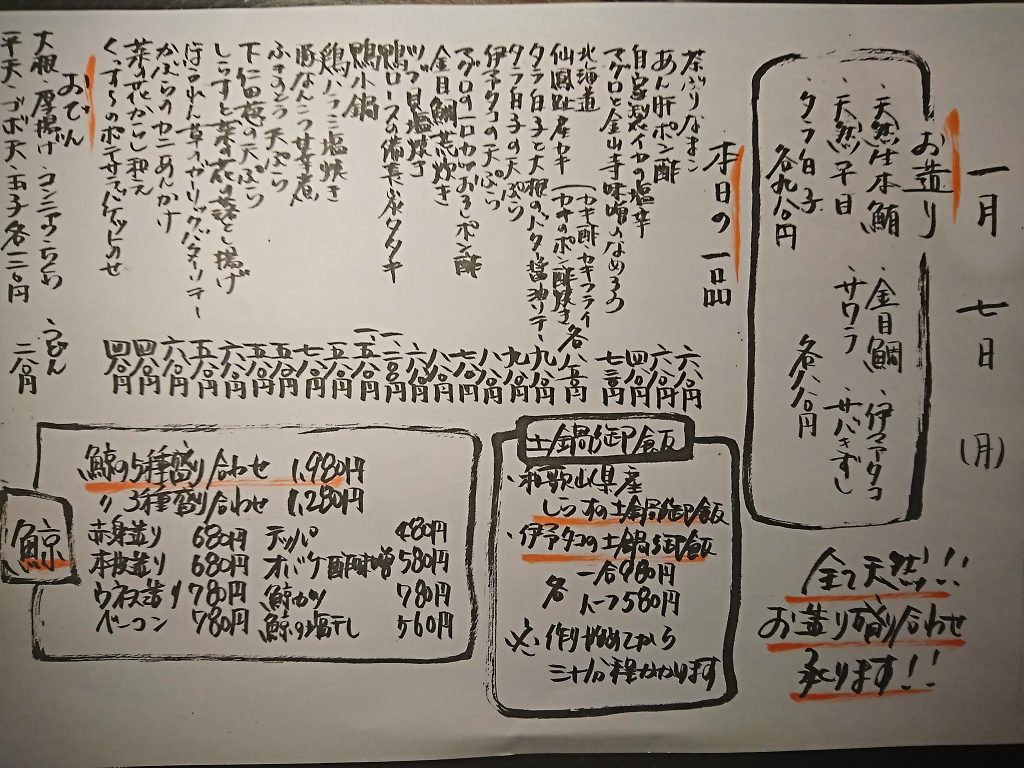 一月 七日 (月)
お造り
・天然生本鮪 ・金目鯛 ・伊予タコ
・天然平目 ・サワラ ・サバきずし
・タラ白子
各九八〇円 各八八〇円
全て天然!!
お造り盛り合わせ
承ります!!
本日の一品
茶ぶりなまこ 六八〇円
あん肝ポン酢 六八〇円
自家製イカの塩辛 四八〇円
マグロと金山寺味噌のなめろう 七三〇円
北海道
仙鳳趾産カキ (カキ酢 カキフライ カキのポン酢焼き 各八五〇円
タラ白子と大根のバター醤油ソテー 九八〇円
タラ白子の天ぷら 九八〇円
伊予タコの天ぷら 八八〇円
マグロの一口カツおろしポン酢 七八〇円
金目鯛荒炊き 八八〇円
ツブ貝塩焼き 六八〇円
鴨ロースの備長炭タタキ 一、二八〇円
鴨小鍋 一、五八〇円
鶏ハラミ塩焼き 五八〇円
豚なんこつ甘辛煮 七八〇円
ふきのとう天ぷら 五八〇円
下仁田葱の天ぷら 五八〇円
しらすと菜の花の落とし揚げ 六八〇円
ほうれん草のガーリックバターソテー 五八〇円
かぶらのカニあんかけ 六八〇円
菜の花からし和え 四八〇円
くんすいのポテサラバゲットのせ 四八〇円
おでん
大根・厚揚げ・コンニャク・ちくわ ・うどん
平天・ゴボ天・玉子 各二三〇円 二八〇円
土鍋御飯
・和歌山県産
しらすの土鍋御飯
・伊予タコの土鍋御飯
各 一合980円
ハーフ580円
※作り始めてから
三十分程かかります
鯨
鯨の5種盛り合わせ 1,980円
〃 3種盛り合わせ 1,280円
赤身造り 680円 テッパ 480円
本皮造り 680円 オバケ酢味噌 580円
ウネス造り 780円 鯨カツ 780円
ベーコン 780円 鯨の塩干し 560円